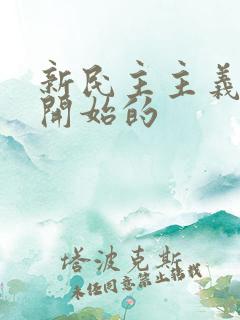 新民主主義
開始的
塔波克斯
未經同意禁止轉載